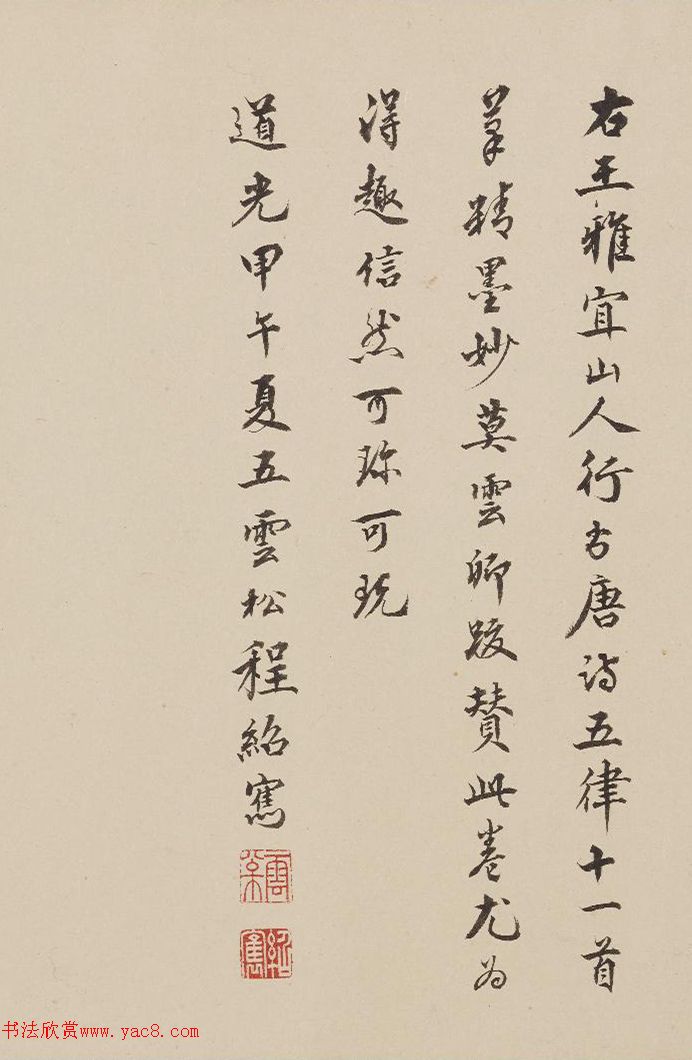 右王雅宜山人行书唐诗五律十一首
筆精墨妙莫雲卿跋賛此卷尤为
得趣信然可珎可玩
道光甲午夏五雲松程紹寯
雲松
紹寯
书法欣赏www.yac8.com